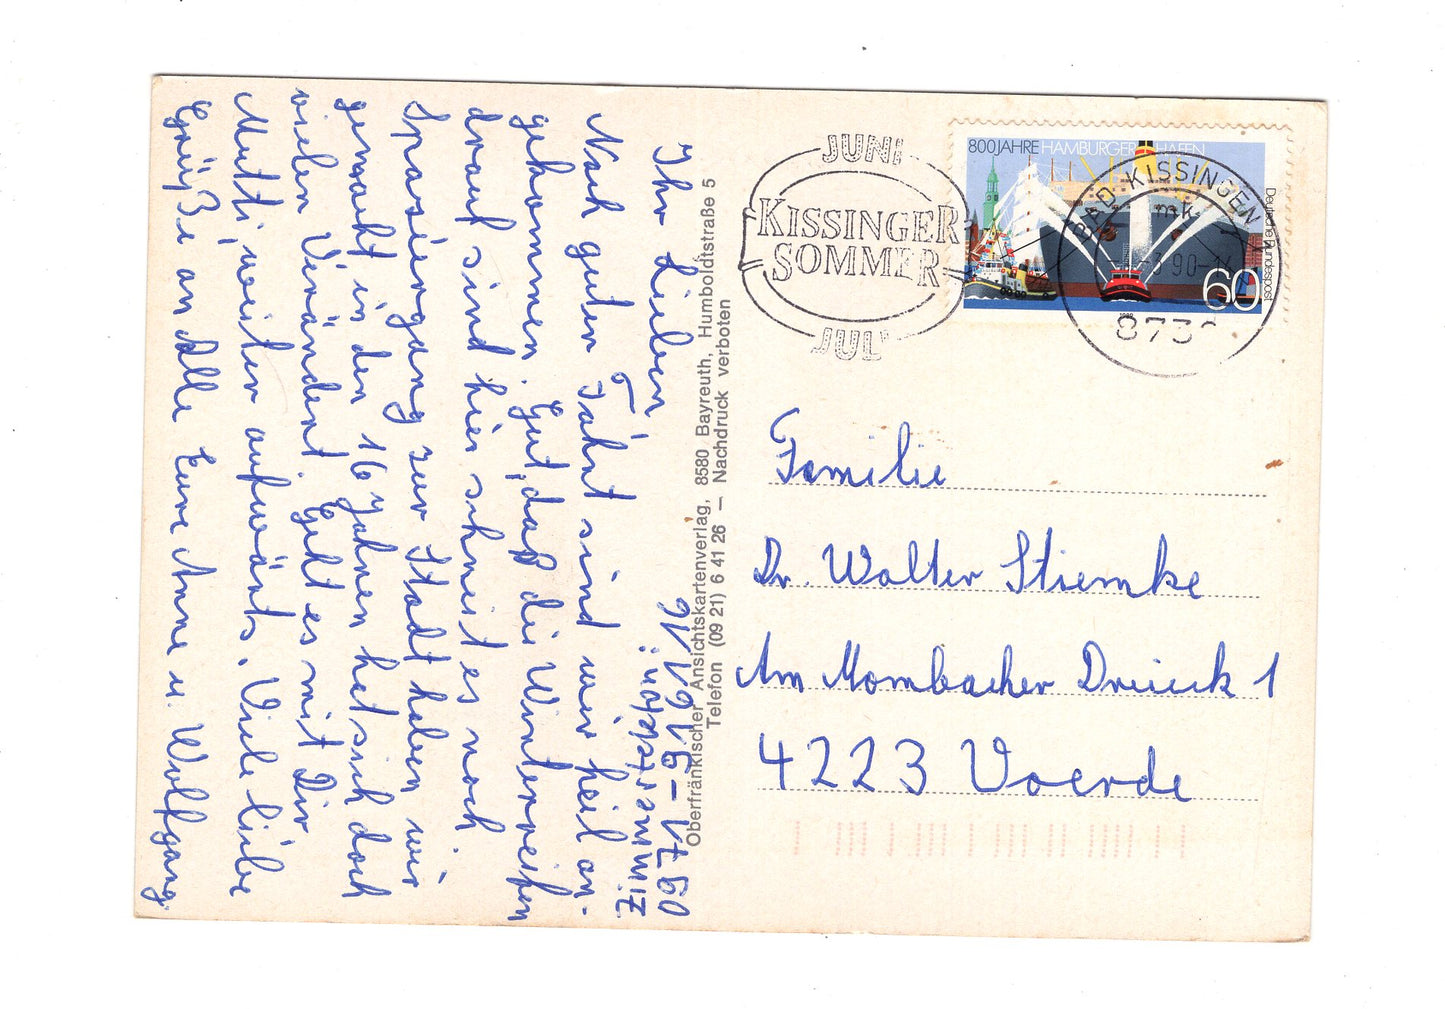 Ihr Lieben
Nach guter Fahrt sind wir heil an-
gekommen. Gut, daß die Winterreifen
drauf sind hier schneit es noch.
Spasiergang zur Stadt haben wir
gemacht in den 16 Jahren hat sich doch
vielen Verändert. Geht es mit Dir
Mutti, weiter aufwärts. Viele liebe
Grüße an Alle Eure Anne u. Wolfgang.
Zimmertelefon:
0971-916116
Oberfränkischer Ansichtskartenverlag, 8580 Bayreuth, Humboldtstraße 5
Telefon (09 21) 6 41 26 – Nachdruck verboten
JUNI
KISSINGER
SOMMER
JULI
800 JAHRE HAMBURGER HAFEN
Deutsche Bundespost
60
1989
BAD KISSINGEN 1
mk
3.90-14
873
Familie
Dr. Walter Stremke
Am Mombacher Dreieck 1
4223 Voerde